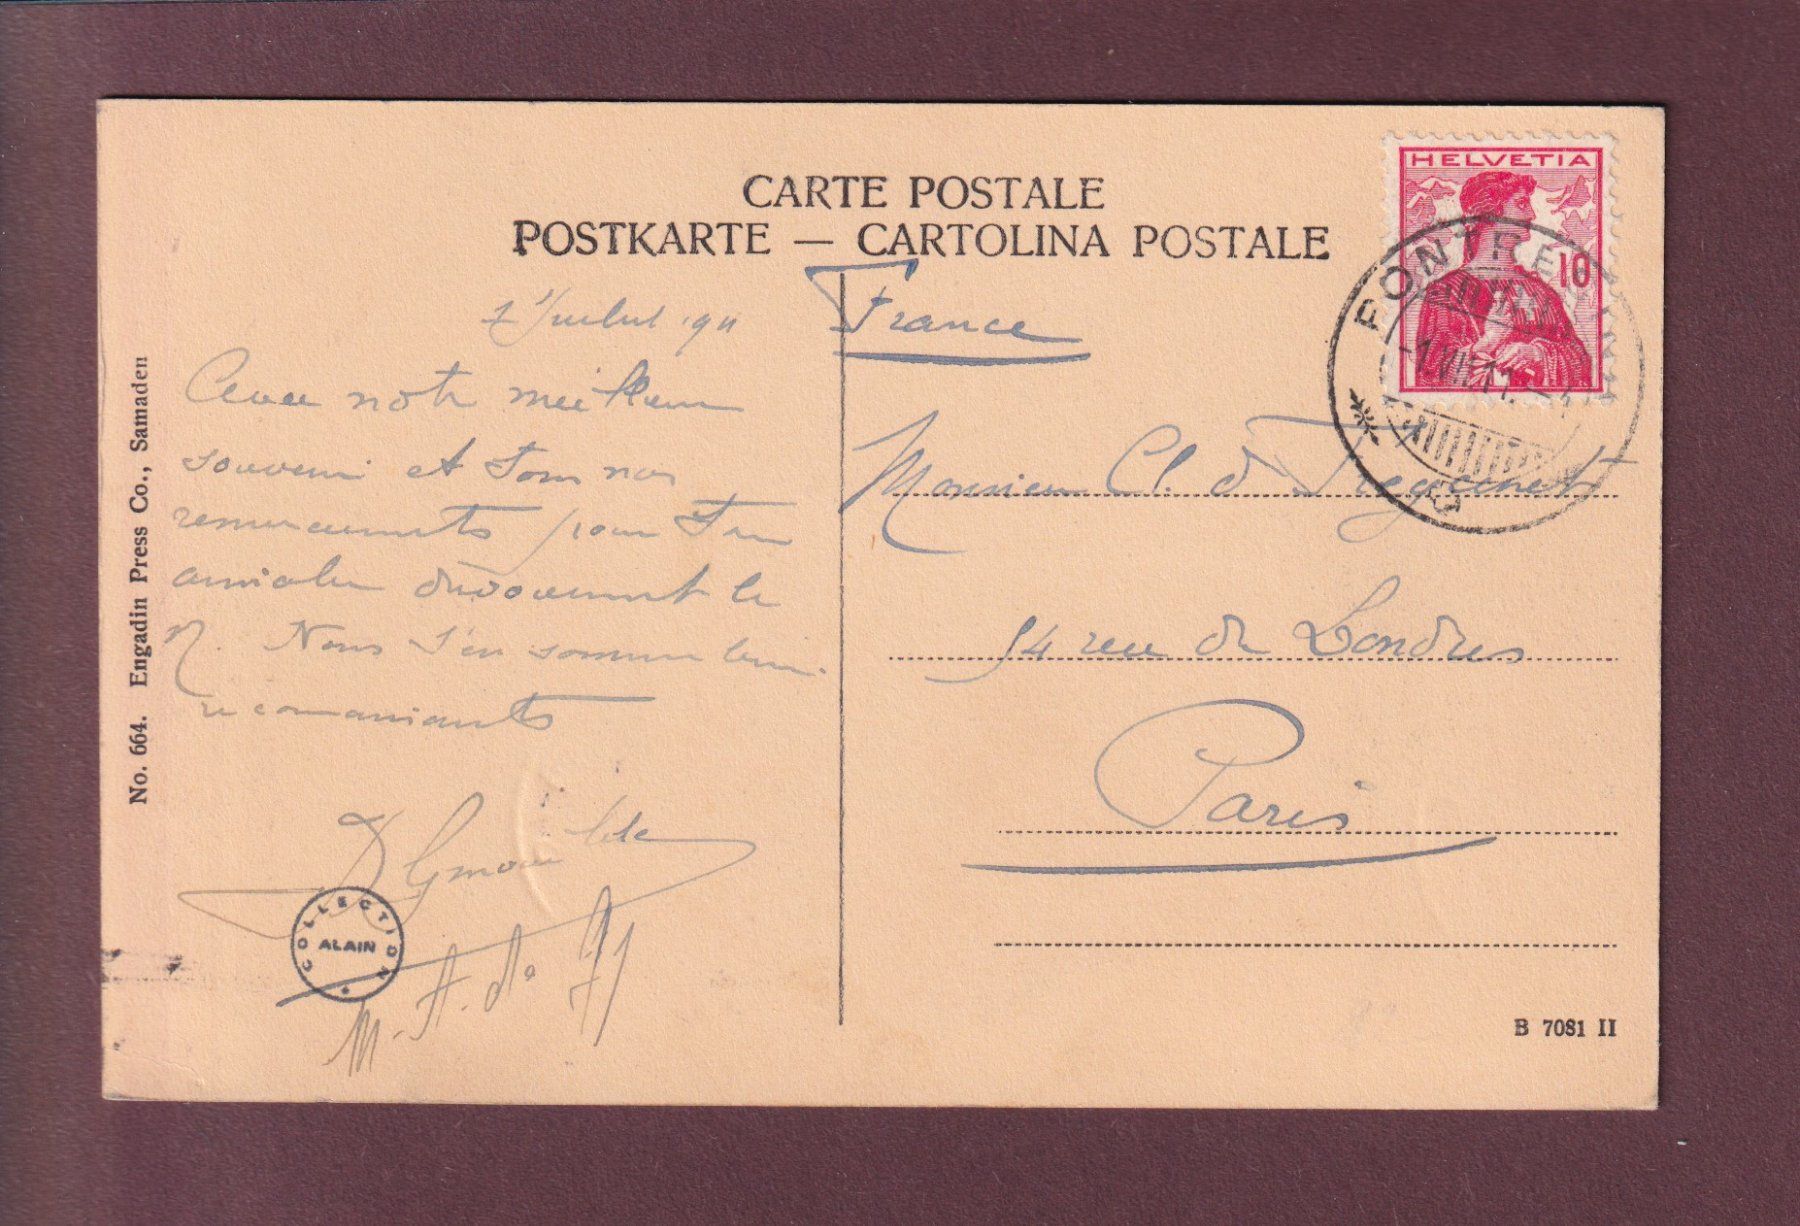 CARTE POSTALE
POSTKARTE — CARTOLINA POSTALE
HELVETIA
10
PONTRE
-1.VII.11.
No. 664. Engadin Press Co., Samaden
Juillet 1911
Avec notre meilleur
souvenir et tous nos
remerciements pour
aimable dévouement le
N. Nous t'en sommes bien
reconnaissants
M. A. de
COLLECTION
ALAIN
France
Monsieur Cl. de
54 rue de Londres
Paris
B 7081 II